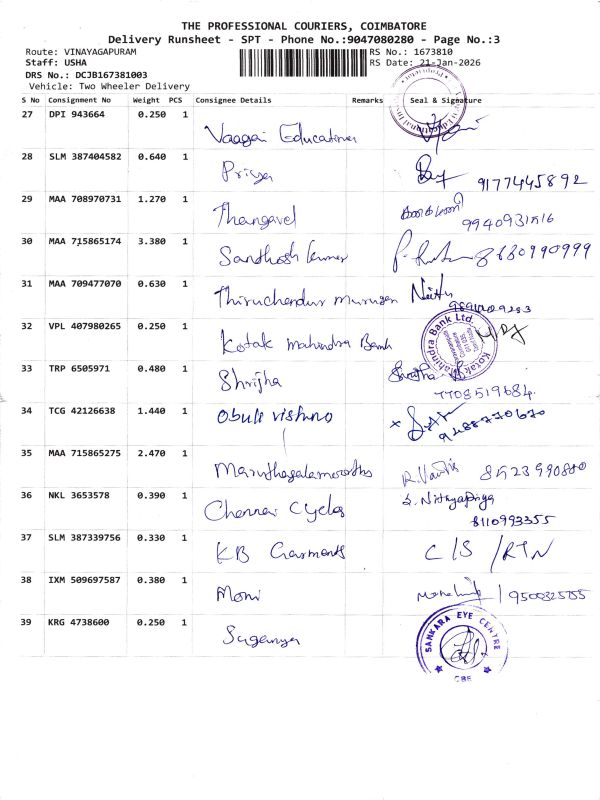 THE PROFESSIONAL COURIERS, COIMBATORE
Delivery Runsheet - SPT - Phone No.:9047080280 - Page No.:3
Route: VINAYAGAPURAM RS No.: 1673810
Staff: USHA RS Date: 21-Jan-2026
DRS No.: DCJB167381003
Vehicle: Two Wheeler Delivery
S No Consignment No Weight PCS Consignee Details Remarks Seal & Signature
27 DPI 943664 0.250 1
Vaagai Educational
28 SLM 387404582 0.640 1
Priya
9177445892
29 MAA 708970731 1.270 1
Thangavel
கனகமணி
30 MAA 715865174 3.380 1
Santhosh kumar 8680990999
31 MAA 709477070 0.630 1
Thiruchendur Murugan
32 VPL 407980265 0.250 1
Kotak mahindra Bank
Kotak Mahindra Bank Ltd.
33 TRP 6505971 0.480 1
Shrijha
7708519684
34 TCG 42126638 1.440 1
Obuli vishnu
35 MAA 715865275 2.470 1
Maruthagalamoorthi
36 NKL 3653578 0.390 1
Chennai Cycles
S. Nithyapriya
8110993355
37 SLM 387339756 0.330 1
KB Garments C/S /RTN
38 IXM 509697587 0.380 1
Moni
39 KRG 4738600 0.250 1
Suganya
SANKARA EYE CENTRE
CBE